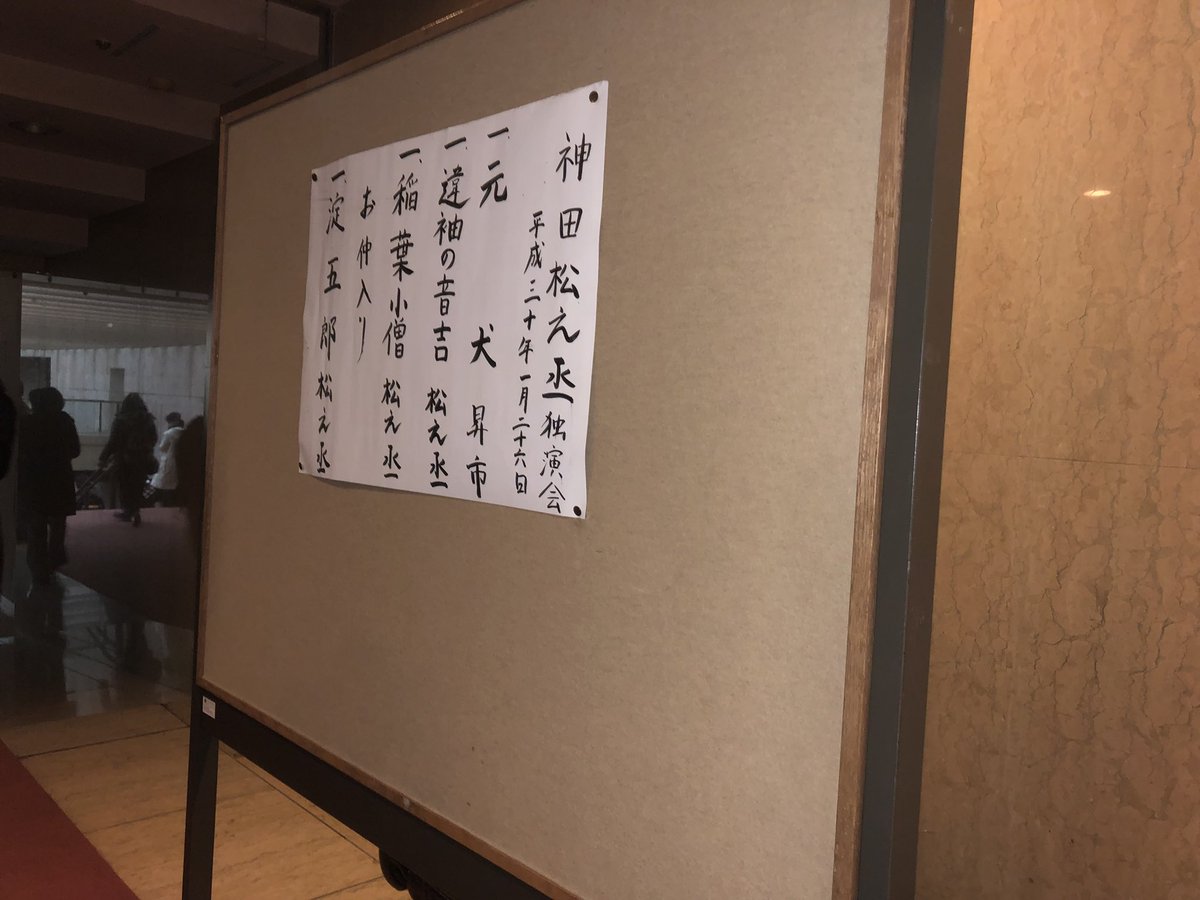 神田松之丞独演会
平成三十年一月二十六日
一、元犬 昇市
一、違袖の音吉 松之丞
一、稲葉小僧 松之丞
お仲入り
一、淀五郎 松之丞